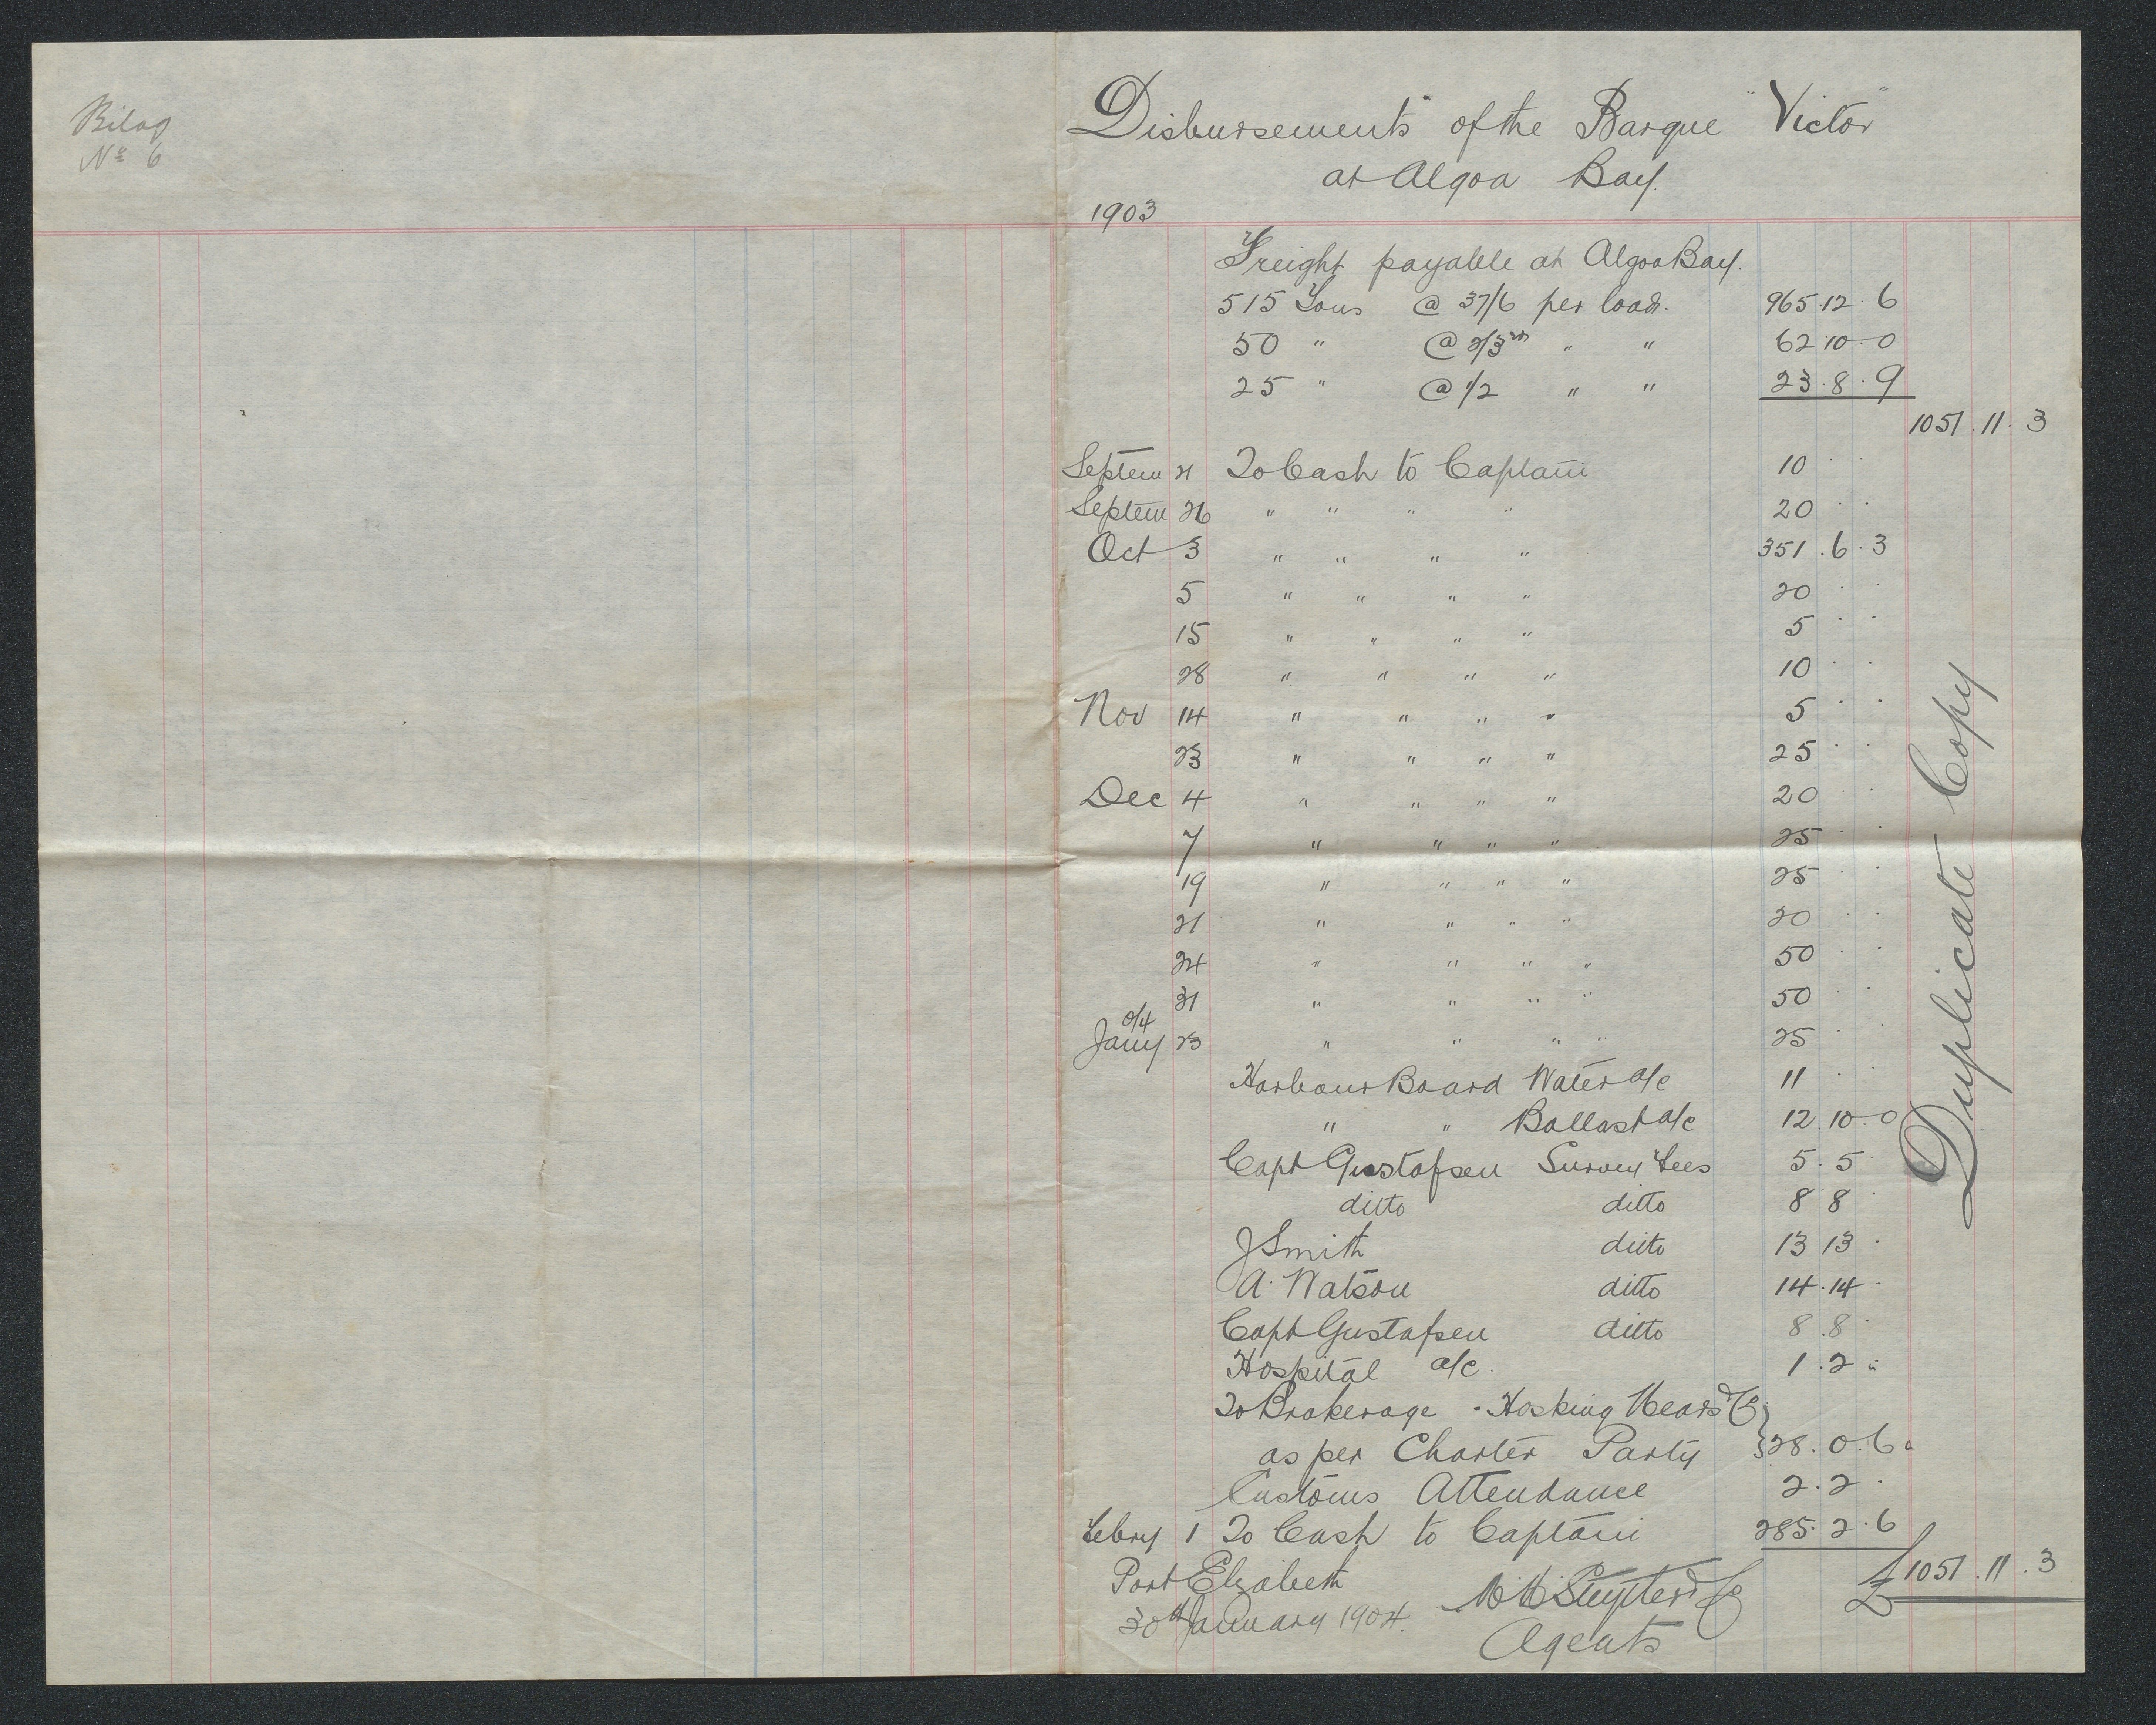 Bilag
No 6
Disbursements of the Barque "Victor"
at Algoa Bay.
1903
Freight payable at Algoa Bay.
515 Tons @ 37/6 per load. 965.12.6
50 " @ 2/3rds " " 62.10.0
25 " @ 1/2 " " 23.8.9
1051.11.3
Septem 21 To Cash to Captain 10 . .
Septem 26 " " " " 20 . .
Oct 3 " " " " 351.6.3
5 " " " " 20 . .
15 " " " " 5 . .
28 " " " " 10 . .
Nov 14 " " " " 5 . .
23 " " " " 25 . .
Dec 4 " " " " 20 . .
7 " " " " 25 . .
19 " " " " 25 . .
21 " " " " 20 . .
24 " " " " 50 . .
31 " " " " 50 . .
o/4
Jany 23 " " " " 25 . .
Harbour Board Water a/c 11 . .
" " Ballast a/c 12.10.0
Capt Gustafsen Survey Fees 5.5.
ditto ditto 8 8 .
J Smith ditto 13 13 .
A. Watson ditto 14.14.
Capt Gustafsen ditto 8.8.
Hospital a/c. 1.2"
To Brokerage . Hosking Mears & Co }
as per Charter Party } 28.0.6
Customs Attendance 2.2.
Febry 1 To Cash to Captain 285.2.6
£1051.11.3
Port Elizabeth
30th January 1904.
& Co
Agents
Duplicate Copy